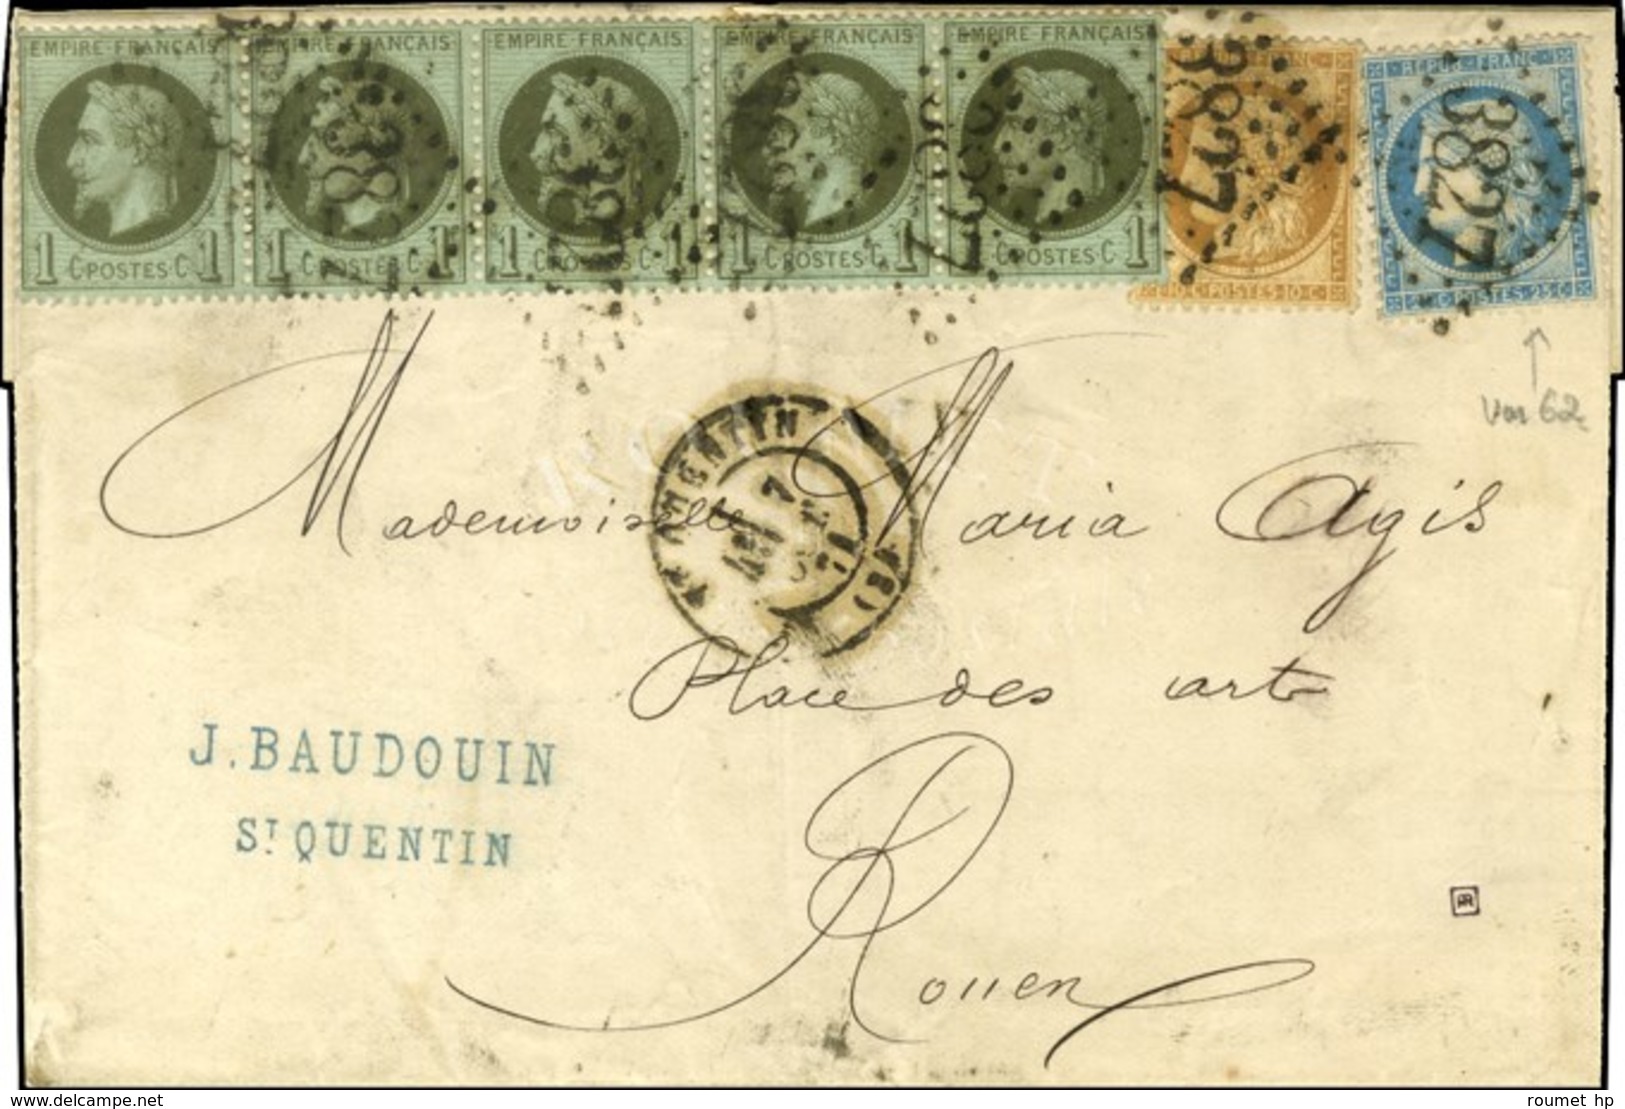 EMPIRE FRANÇAIS EMPIRE FRANÇAIS EMPIRE FRANÇAIS EMPIRE FRANÇAIS EMPIRE FRANÇAIS FRANC REPUB. FRANC.
3827 3827
1 C POSTES C 1 1 C POSTES C 1 1 C POSTES C 1 1 C POSTES C 1 1 C POSTES C 1 10 C POSTES 10 C POSTES 25 C
Mademoiselle Maria Agis
Place des arts
Rouen
J. BAUDOUIN
ST QUENTIN
roumet hp